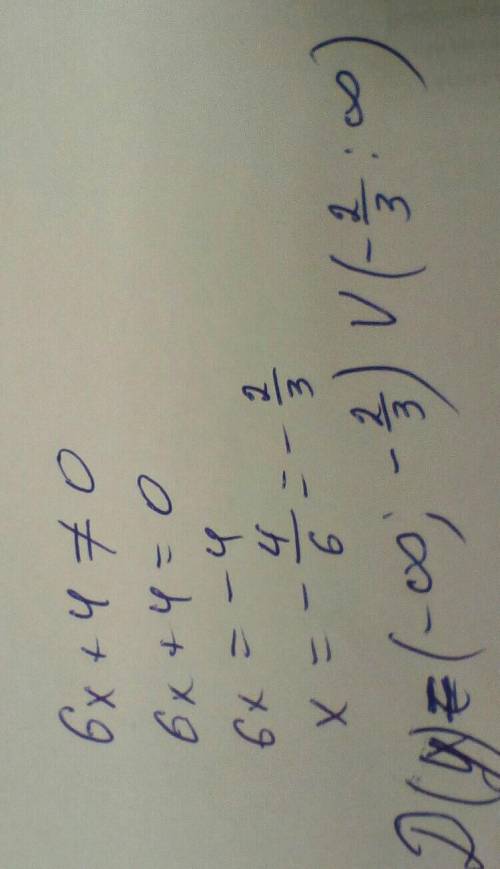 6x + 4 ≠ 0
6x + 4 = 0
6x = -4
x = -4/6 = -2/3
D(y) = (-∞; -2/3) ∪ (-2/3 : ∞)